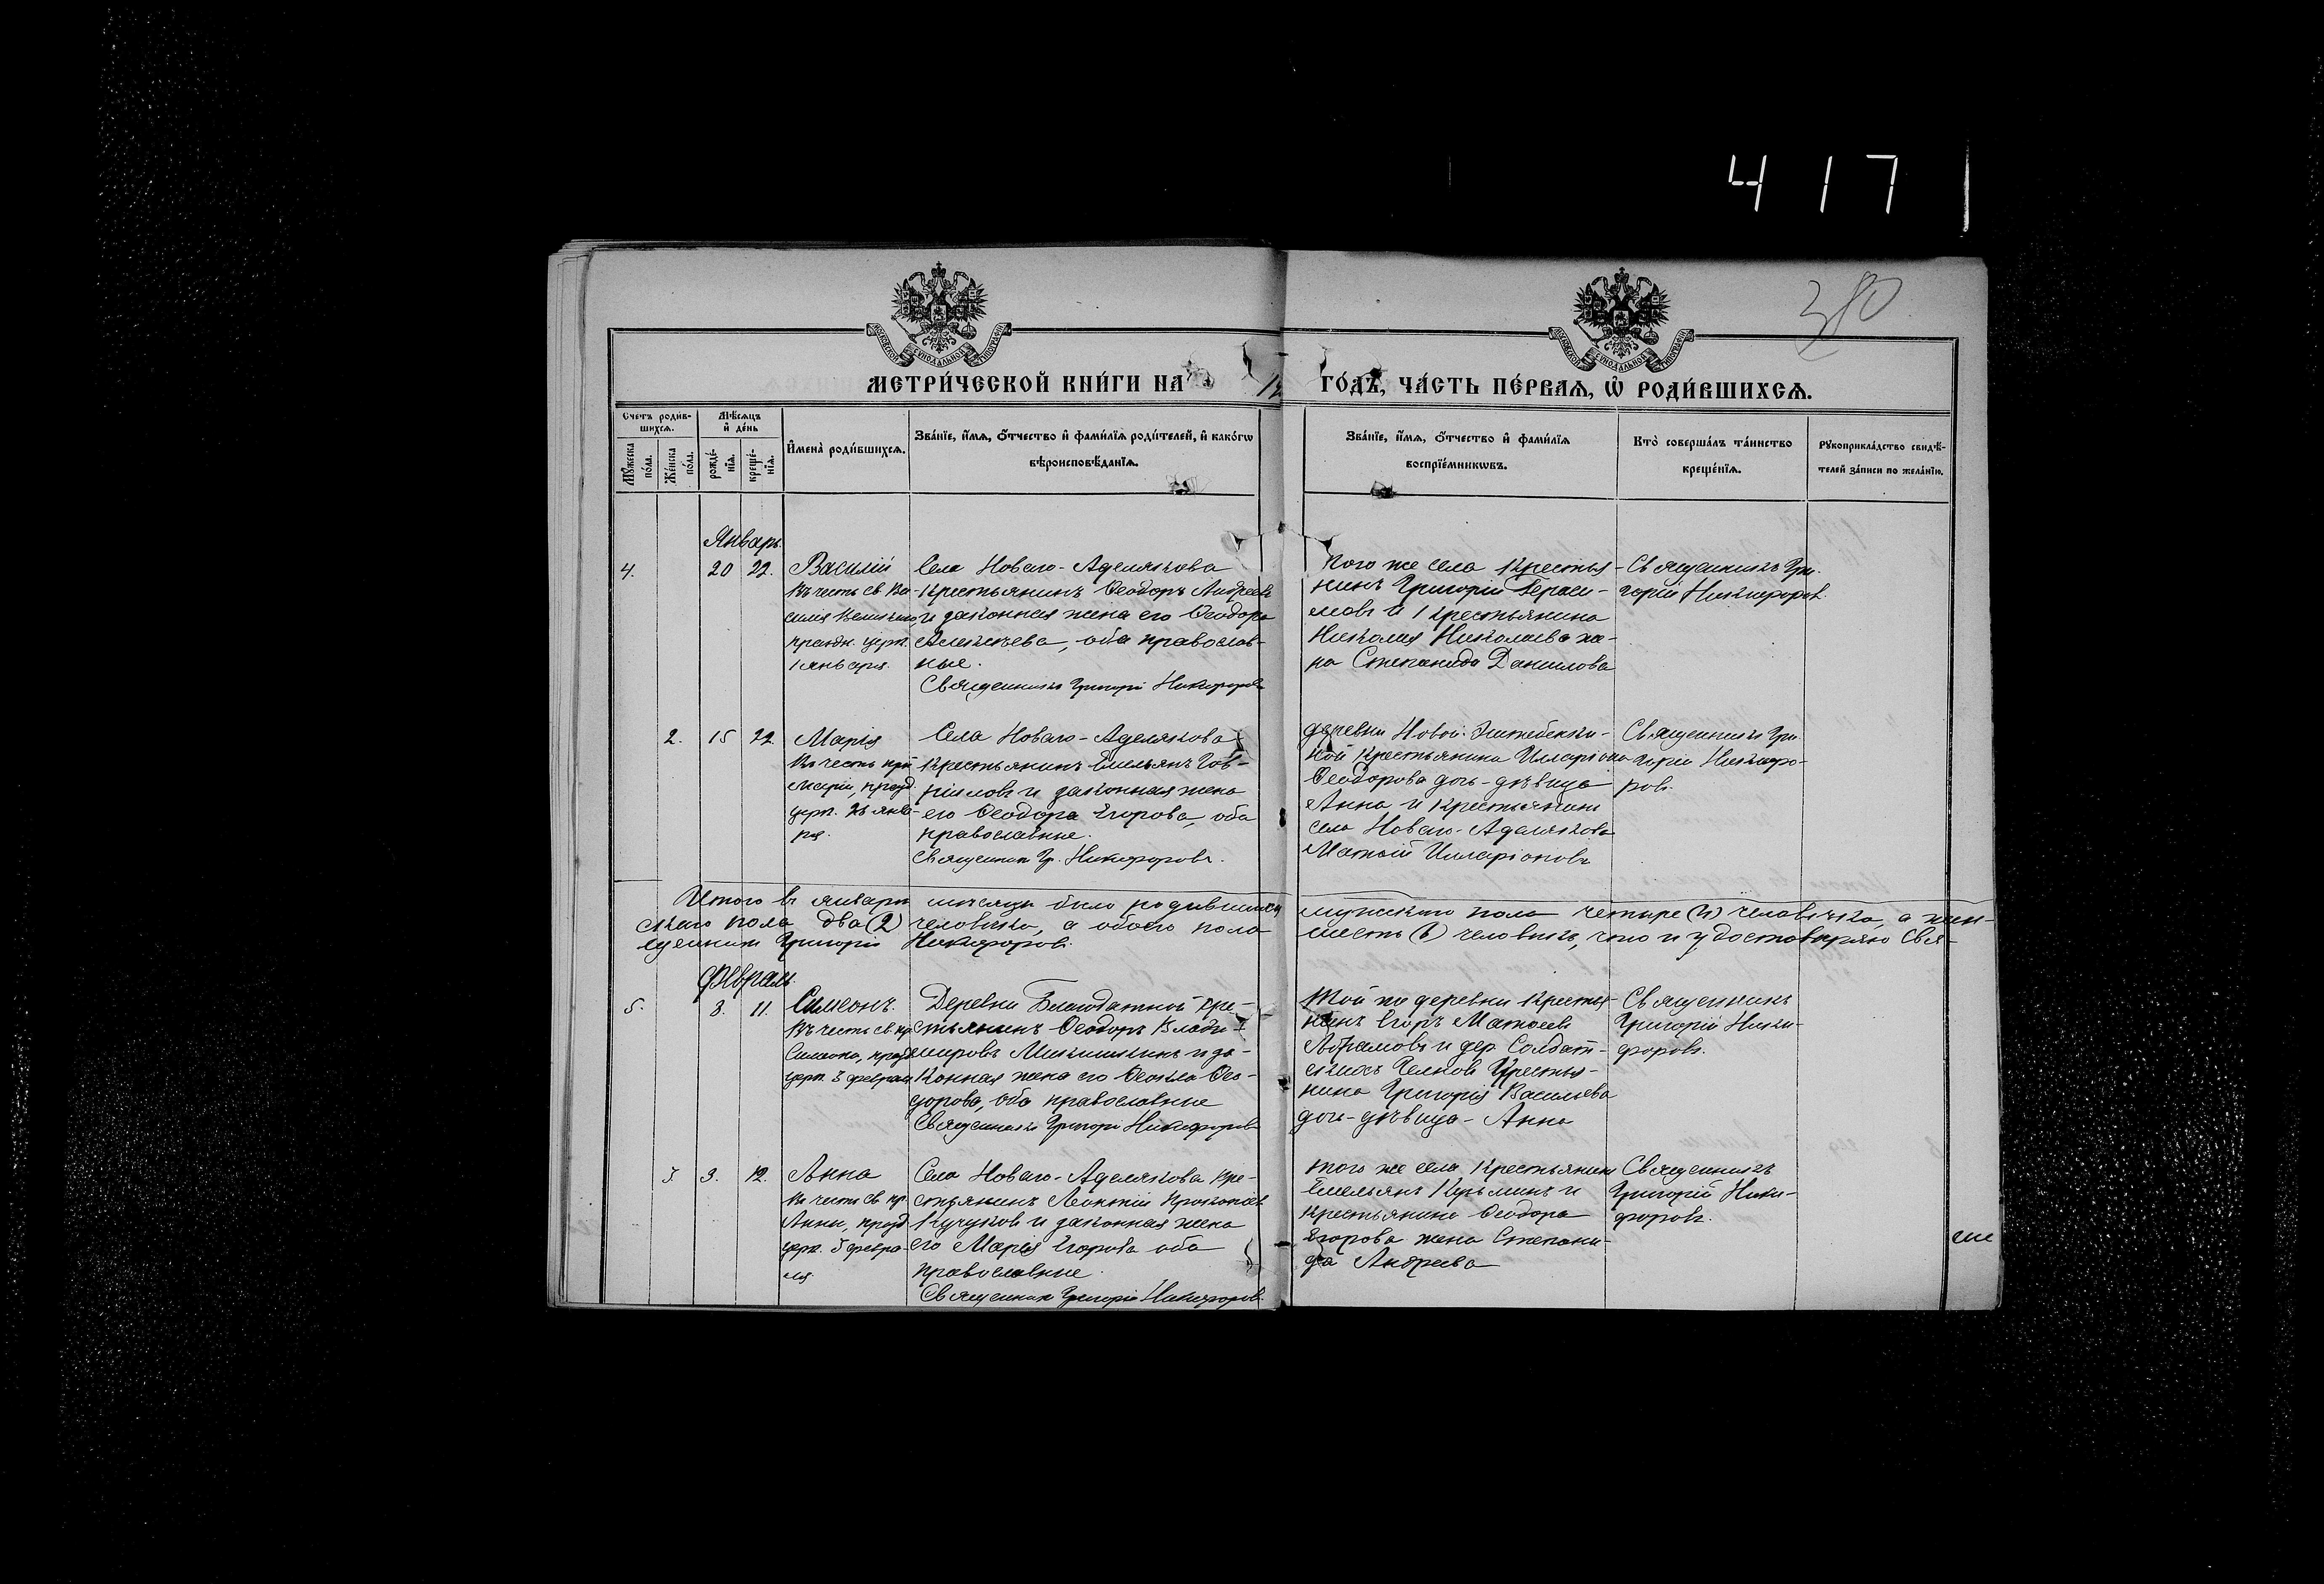 4 1 7
380
МОСКОВСКОЙ СУНОДАЛЬНОЙ ТИПОГРАФІИ
МОСКОВСКОЙ СУНОДАЛЬНОЙ ТИПОГРАФІИ
МЕТРИ́ЧЕСКОЙ КНИ́ГИ НА
ГО́ДЪ, ЧА́СТЬ ПЕ́РВАѦ, Ѡ҆ РОДИ́ВШИХСѦ.
Счетъ роди́в-
шихсѧ.
Мꙋ́жеска по́ла.
Же́нска по́ла.
Мѣ́сѧцъ
и҆ де́нь
рожде́-
нїѧ.
креще́-
нїѧ.
И҆мена̀ роди́вшихсѧ.
Зва́нїе, и҆́мѧ, о҆́тчество и҆ фами́лїѧ роди́телей, и҆ како́гѡ
вѣроисповѣ́данїѧ.
Зва́нїе, и҆́мѧ, о҆́тчество и҆ фами́лїѧ
воспрїе́мникѡвъ.
Кто̀ соверша́лъ та́инство
креще́нїѧ.
Рꙋкоприкла́дство свидѣ́-
телей за́писи по жела́нїю.
Январь.
4.
20 22.
Василій
Въ честь св. Ва-
силія Великаго,
праздн. церк.
1 января.
Села Новаго-Аделякова
крестьянинъ Ѳеодоръ Андреевъ
и законная жена его Ѳеодора
Алексѣева, оба православ-
ные.
Священникъ Григорій Никифоровъ
Того же села крестья-
нинъ Григорій Гераси-
мовъ и крестьянина
Николая Николаева же-
на Степанида Данилова
Священникъ Гри-
горій Никифоровъ.
2. 15 22.
Марія
Въ честь пр.
Маріи, празд.
церк. 26 янва-
ря.
Села Новаго-Аделякова
крестьянинъ Емельянъ Гав-
риловъ и законная жена
его Ѳеодора Егорова, оба
православные.
Священник Гр. Никифоровъ.
деревни Новой
крестьянина Илларіона
Ѳеодорова дочь-дѣвица
Анна и крестьянинъ
села Новаго-Аделякова
Матѳій Илларіоновъ
Священникъ Гри-
горій Никифо-
ровъ.
Итого въ январѣ мѣсяцѣ было родившихся мужскаго пола четыре (4) человѣка, а жен-
скаго пола два (2) человѣка, а обоего пола шесть (6) человѣкъ, что и удостовѣряю Свя-
щенникъ Григорій Никифоровъ.
Февраль.
5.
3. 11.
Симеонъ.
Въ честь св. пр.
Симеона, празд.
церк. 3 февраля
Деревни Благодатной кре-
стьянинъ Ѳеодоръ Влади-
мировъ Микишкинъ и за-
конная жена его Ѳекла Ѳео-
дорова, оба православные
Священникъ Григорій Никифоровъ
Той же деревни крестья-
нинъ Егоръ Матѳеевъ
Абрамовъ и дер. Солдат-
скаго крестья-
нина Григорія Васильева
дочь-дѣвица-Анна
Священникъ
Григорій Ники-
форовъ.
3. 3. 12.
Анна
Въ честь св. пр.
Анны, празд.
церк. 3 февра-
ля.
Села Новаго-Аделякова кре-
стьянинъ Леонтій Прокопьевъ
Кучуковъ и законная жена
его Марія Егорова оба
православные.
Священникъ Григорій Никифоровъ.
Того же села крестьянинъ
Емельянъ Кузьминъ и
крестьянина Ѳеодора
Егорова жена Степани-
да Андреева
Священникъ
Григорій Ники-
форовъ.